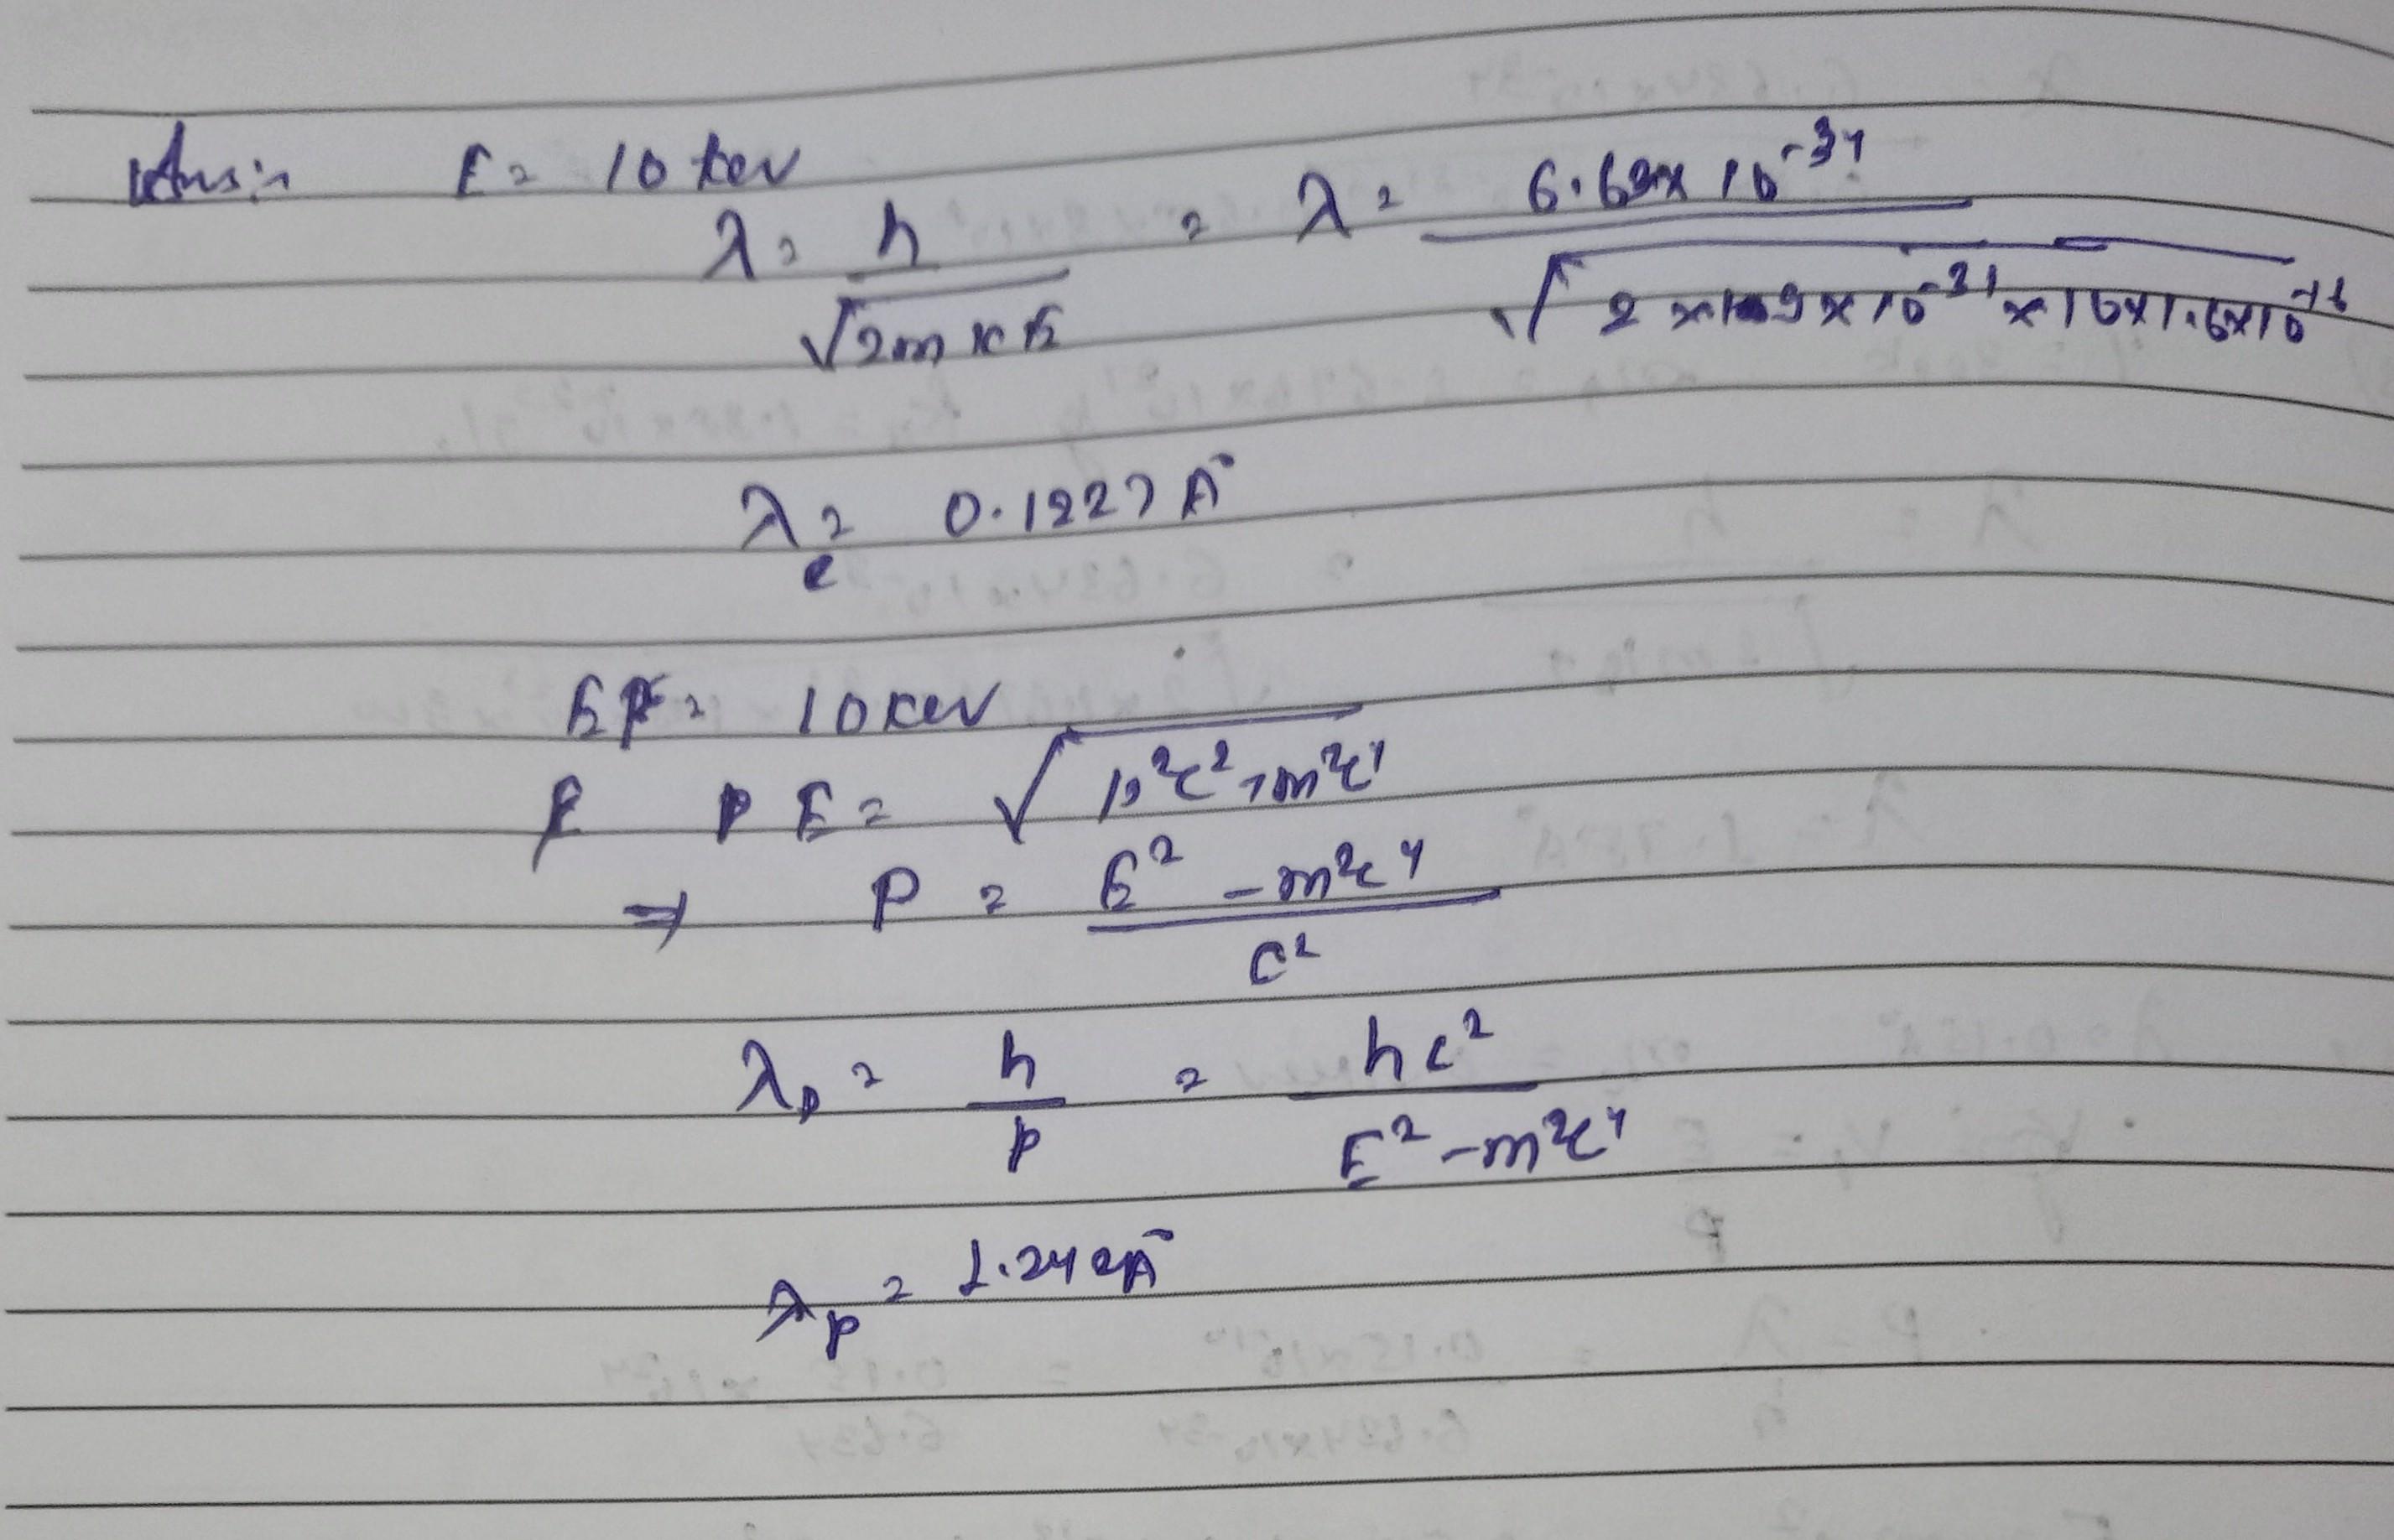 Ans:- E = 10 keV
λ = h / √2m KE = λ = 6.62x 10^-34 / √2 x 9 x 10^-31 x 10x1.6x10^-16
λe = 0.1227 A°
EP = 10 keV
P E = √p²c²+m²c⁴
⇒ P = E² - m²c⁴ / c²
λp = h / p = hc² / E² - m²c⁴
λp = 1.242A°